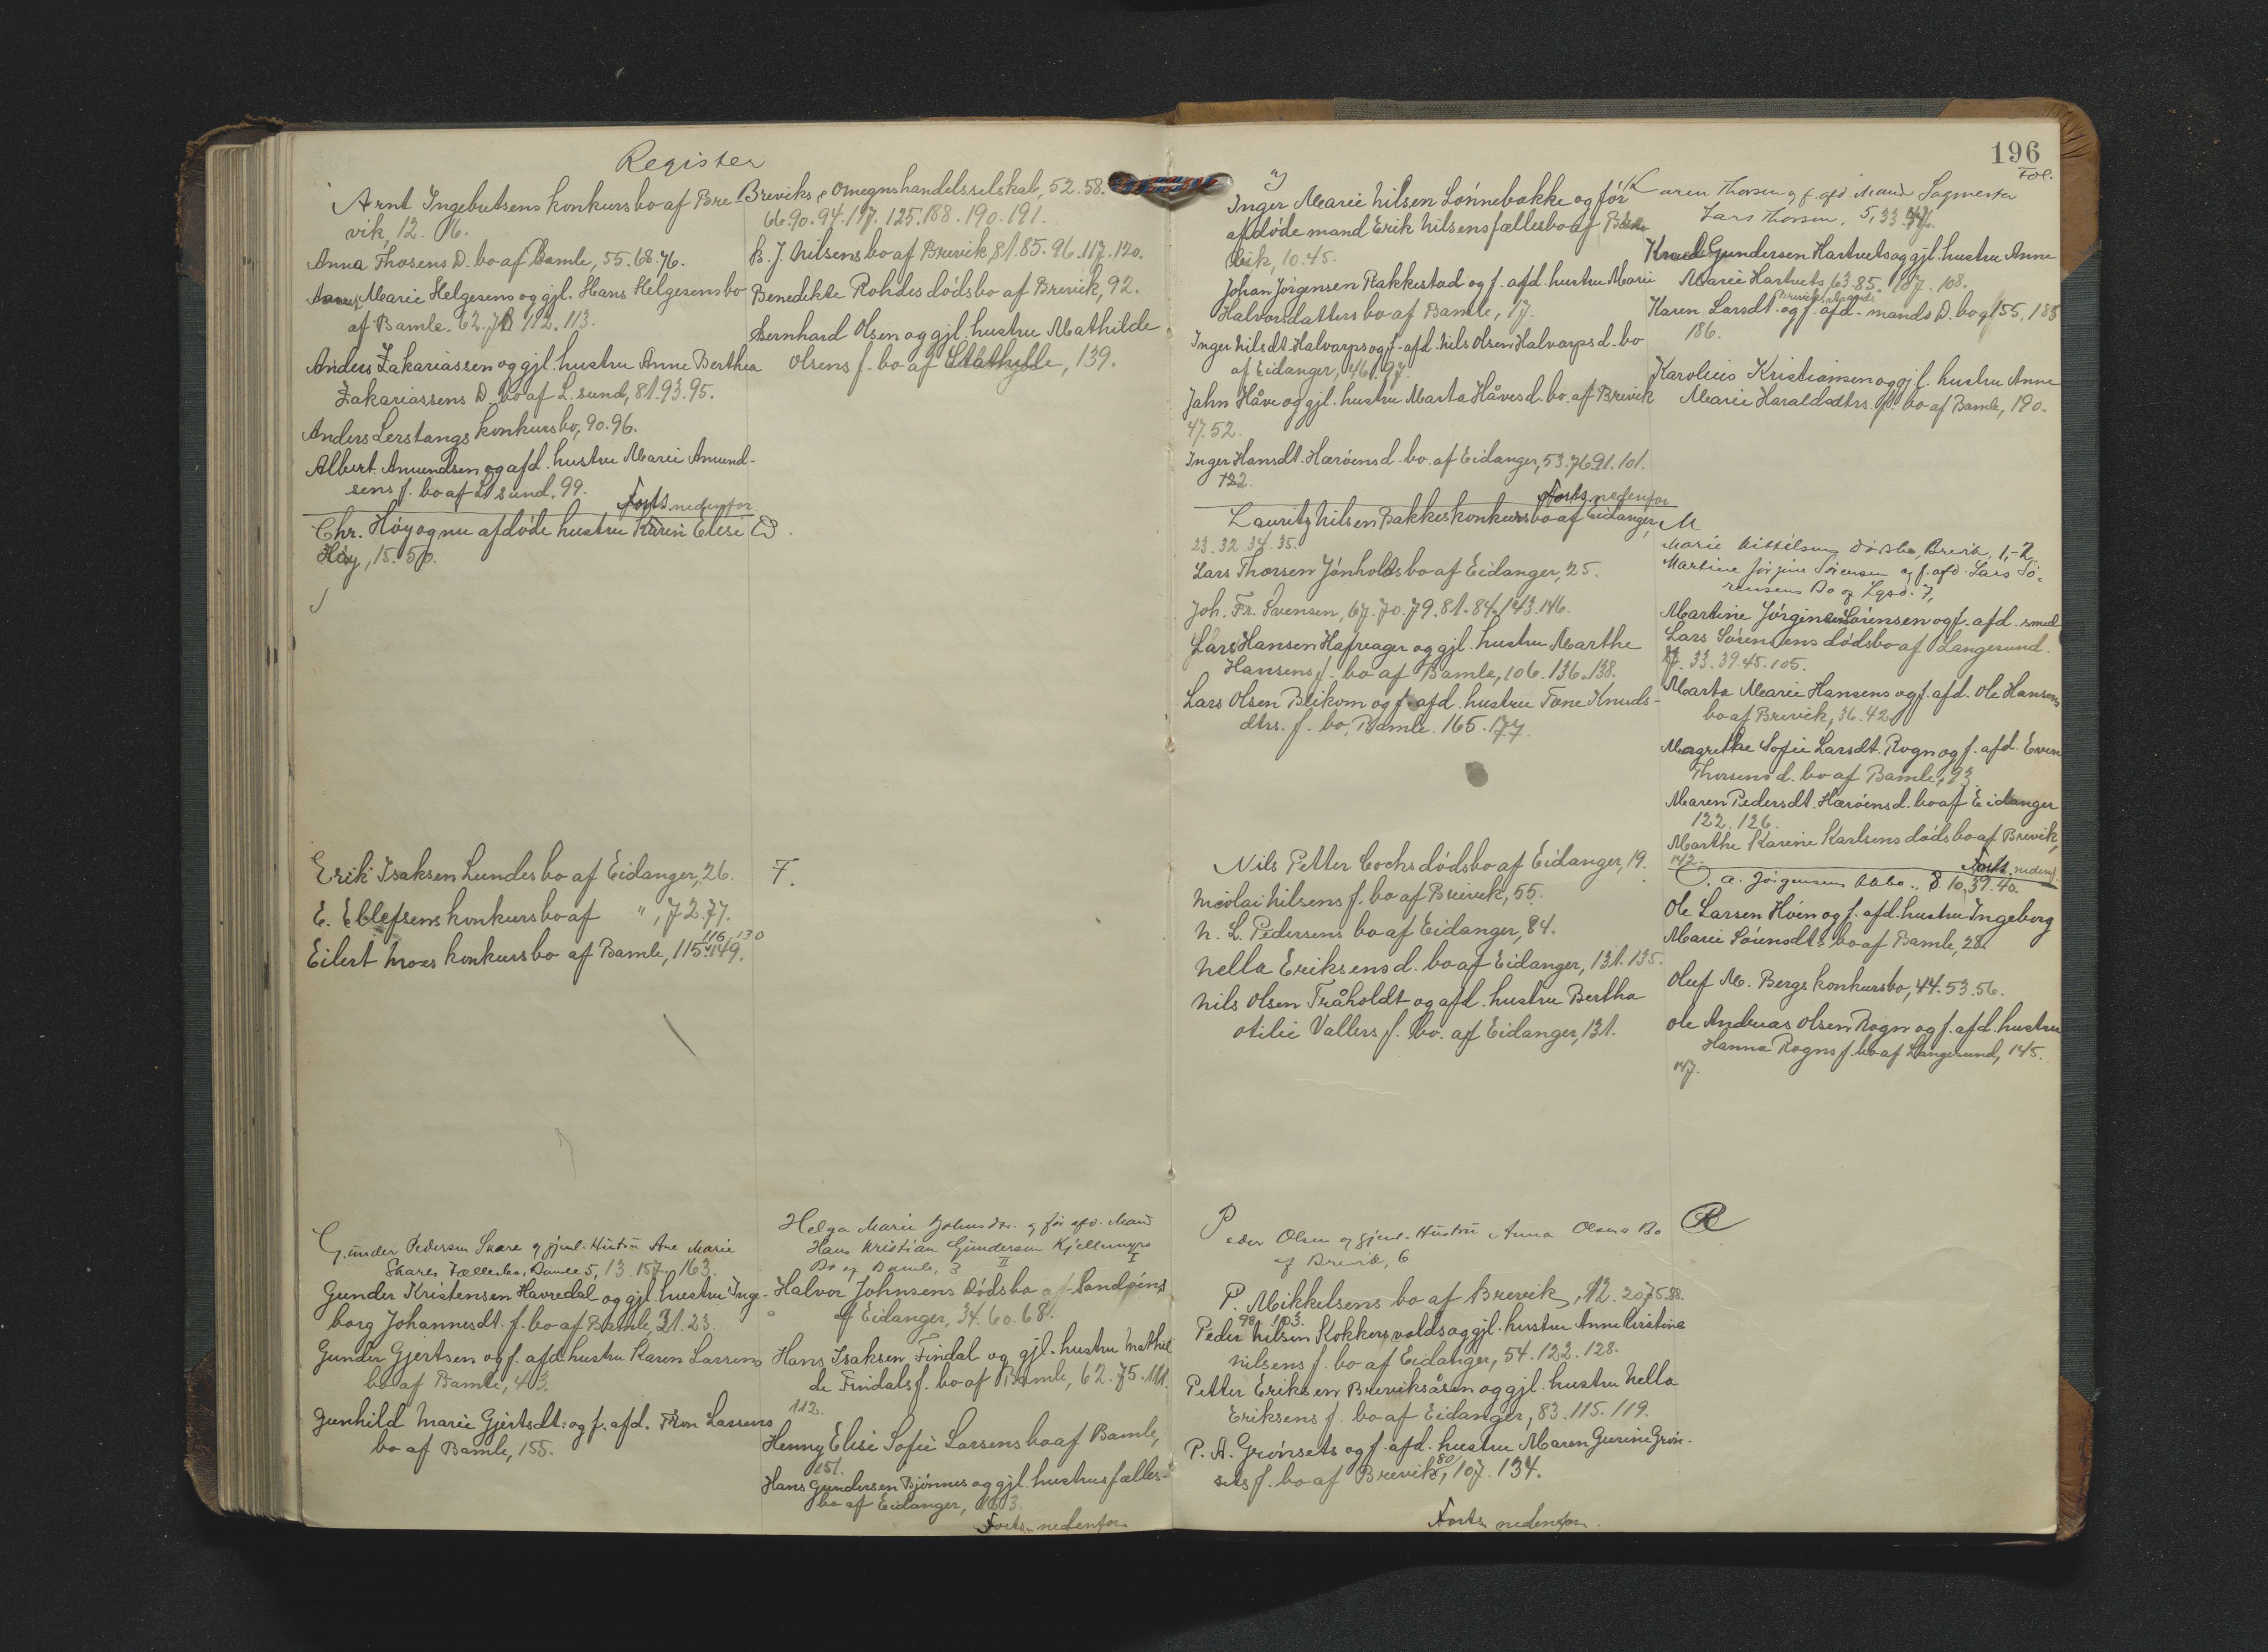 Register
Arnt Ingebretsens konkursbo af Bre-
vik, 12. 16.
Anna Thosens D. bo af Bamle, 55. 68. 76.
Anne Marie Helgesens og gjl. Hans Helgesens bo
af Bamle. 62. 112. 113.
Anders Zakariassen og gjl. hustru Anne Berthea
Zakariassens D. bo af L. sund, 81. 93. 95.
Anders Lerstangs konkursbo, 90. 96.
Albert Amundsen og afd. hustru Marie Amund-
sens f. bo af L. sund. 99.
Forts. nedenfor
Breviks & Omegns handelsselskab, 52. 58.
66. 90. 94. 117. 125. 188. 190. 191.
B. J. Nilsens bo af Brevik, 81. 85. 96. 117. 120.
Benedikte Rohdes dódsbo af Brevik, 92.
Bernhard Olsen og gjl. hustru Mathilde
Olsens f. bo af Stathelle, 139.
Chr. Hóy og nu afdóde hustru Karen Elise
Hóy, 15. 50.
D.
Erik Isaksen Lundes bo af Eidanger, 26.
E. Ellefsens konkursbo af ", 72. 77.
116. 130
Eilert Moes konkursbo af Bamle, 115. 149.
F.
Gunder Pedersen Skare og gjenl. Hustru Ane Marie
Skares Fællesbo, Bamle 5, 13. 157. 163.
Gunder Kristensen Havredal og gjl. hustru Inge-
borg Johannesdt. f. bo af Bamle, 21. 23.
Gunder Gjertsen og f. afd. hustru Karen Larsens
bo af Bamle, 43.
Gunhild Marie Gjertsdt. og f. afd. Larsens
bo af Bamle, 155.
Helga Marie Johnsdtr. og för afd. Mand
Hans Kristian Gundersen Kjellemyrs
Bo af Bamle, 3
Halvor Johnsens Dódsbo af Sandóens
af Eidanger, 34. 60. 68.
Hans Isaksen Findal og gjl. hustru Mathil
de Findals f. bo af Bamle, 62. 75. 111.
112.
Henny Elise Sofie Larsens bo af Bamle,
151.
Hans Gundersen Bjónnes og gjl. hustrus fælles-
bo af Eidanger, 163.
Forts. nedenfor
196
Fol.
Inger Marie Nilsen Lónnebakke og fór
afdóde mand Erik Nilsens fællesbo af Bre
vik, 10. 45.
Johan Jórgensen Rakkestad og f. afd. hustru Marie
Halvorsdatters bo af Bamle, 17.
Inger Nilsdt. Halvarps og f. afd. Nils Olsen Halvarps d. bo
af Eidanger, 46. 97.
Jahn Håve og gjl. hustru Marta Håves d. bo. af Brevik
47. 52.
Inger Hansdt. Hæróens d. bo. af Eidanger, 53. 76. 91. 101.
122.
Forts. nedenfor
Karen Thorsen og f. afd. Mand Sagmester
Lars Thorsen, 5, 33.
Knud Gundersen Hartvets og gjl. hustru Anne
Marie Hartvets, 63. 85. 107. 108.
Karen Larsdt. og f. afd. mands D. bo af 155. 185
186.
Karolius Kristiansen og gjl. hustru Anne
Marie Haraldsdtrs. f. bo af Bamle, 190.
Lauritz Nilsen Bakkes konkursbo af Eidanger,
23. 32. 34. 35.
Lars Thorsen Jónholts bo af Eidanger, 25.
Joh. Fr. Sørensen, 67. 70. 79. 81. 84. 143. 146.
Lars Hansen Hafreager og gjl. hustru Marthe
Hansens f. bo af Bamle, 106. 136. 138.
Lars Olsen Blikom og f. afd. hustru Tone Knuds-
dtrs. f. bo, Bamle. 165. 177.
M
Marie Kittilsens dødsbo, Brevik, 1,-2,
Martine Jörgine Sörensen og f. afd. Lars Sö-
rensens Bo af Lgsd. 7,
Martine Jórgine Sórensen og f. afd. smed
Lars Sórensens dódsbo af Langesund.
27. 33. 39. 45. 105.
Marta Marie Hansens og f. afd. Ole Hansens
bo af Brevik, 36. 42.
Magrethe Sofie Larsdt. Rogn og f. afd. Even
Thorsens d. bo af Bamle, 93.
Maren Pedersdt. Hæróens d. bo af Eidanger
122. 126.
Marthe Karine Karlsens dódsbo af Brevik,
142.
Forts. nedenf.
Nils Petter Cochs dódsbo af Eidanger, 19.
Nicolai Nilsens f. bo af Brevik, 55.
N. L. Pedersens bo af Eidanger, 84.
Nella Eriksens d. bo af Eidanger, 131. 135.
Nils Olsen Tråholdt og afd. hustru Bertha
Otilie Vallers f. bo. af Eidanger, 131.
O. A. Jörgensens 8. 10. 39. 40.
Ole Larsen Hóen og f. afd. hustru Ingeborg
Marie Sórensdt. bo af Bamle, 28.
Oluf M. Bergs konkursbo, 44. 53. 56.
Ole Andreas Olsen Rogn og f. afd. hustru
Hanna Rogns f. bo af Langesund, 145.
147.
Peder Olsen og gjenl. Hustru Anna Olsens Bo
af Brevik, 6
P. Mikkelsens bo af Brevik, 12. 20. 75. 88.
98. 103.
Peder Nilsen Kokkersvolds og gjl. hustru Anne Kirstine
Nilsens f. bo af Eidanger, 54. 122. 128.
Petter Eriksen Breviksåsen og gjl. hustru Nella
Eriksens f. bo af Eidanger, 83. 115. 119.
P. A. Grónsets og f. afd. hustru Maren Gurine Grón-
sets f. bo af Brevik, 80, 107. 134.
Forts. nedenfor.
R